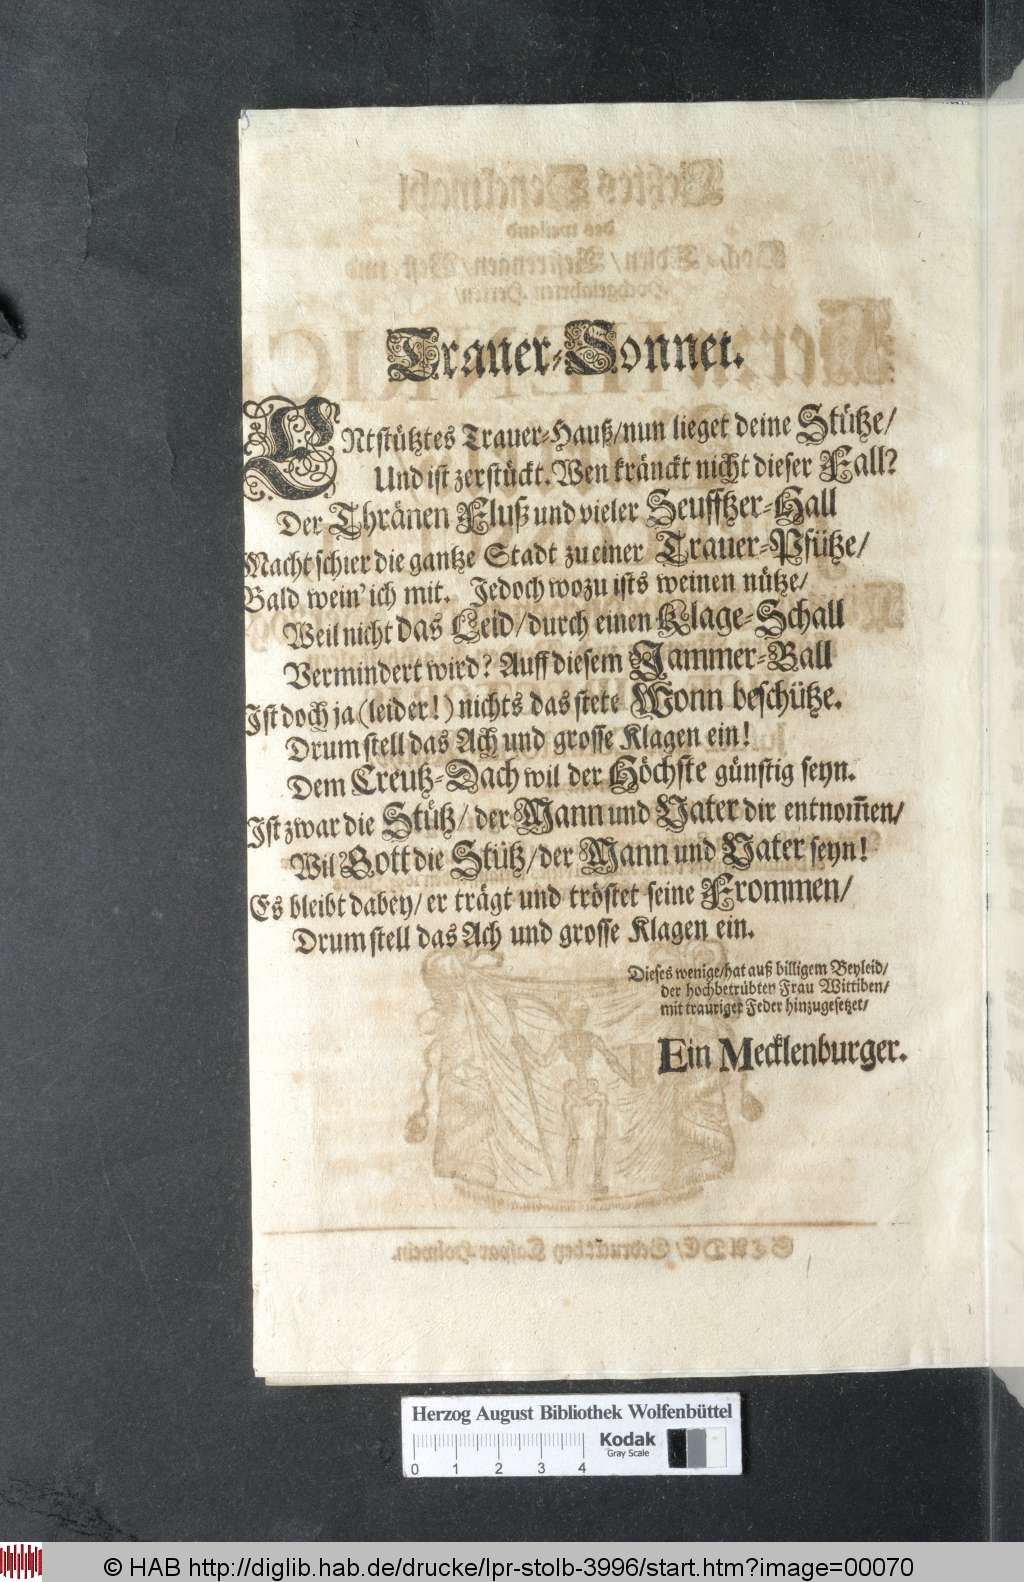 Trauer-Sonnet.
ENtstütztes Trauer-Hauß/nun lieget deine Stütze/
Und ist zerstückt. Wen kränckt nicht dieser Fall?
Der Thränen Fluß und vieler Seufftzer-Hall
Macht schier die gantze Stadt zu einer Trauer-Pfütze/
Bald wein' ich mit. Jedoch wozu ists weinen nütze/
Weil nicht das Leid/durch einen Klage-Schall
Vermindert wird? Auff diesem Jammer-Ball
Ist doch ja (leider!) nichts das stete Wonn beschütze.
Drum stell das Ach und grosse Klagen ein!
Dem Creutz-Dach wil der Höchste günstig seyn.
Ist zwar die Stütz/ der Mann und Vater dir entnom̃en/
Wil Gott die Stütz/der Mann und Vater seyn!
Es bleibt dabey/ er trägt und tröstet seine Frommen/
Drum stell das Ach und grosse Klagen ein.
Dieses wenige/hat auß billigem Beyleid/
der hochbetrübten Frau Wittiben/
mit trauriger Feder hinzugesetzet/
Ein Mecklenburger.
Herzog August Bibliothek Wolfenbüttel
Kodak
Gray Scale
0 1 2 3 4
© HAB http://diglib.hab.de/drucke/lpr-stolb-3996/start.htm?image=00070